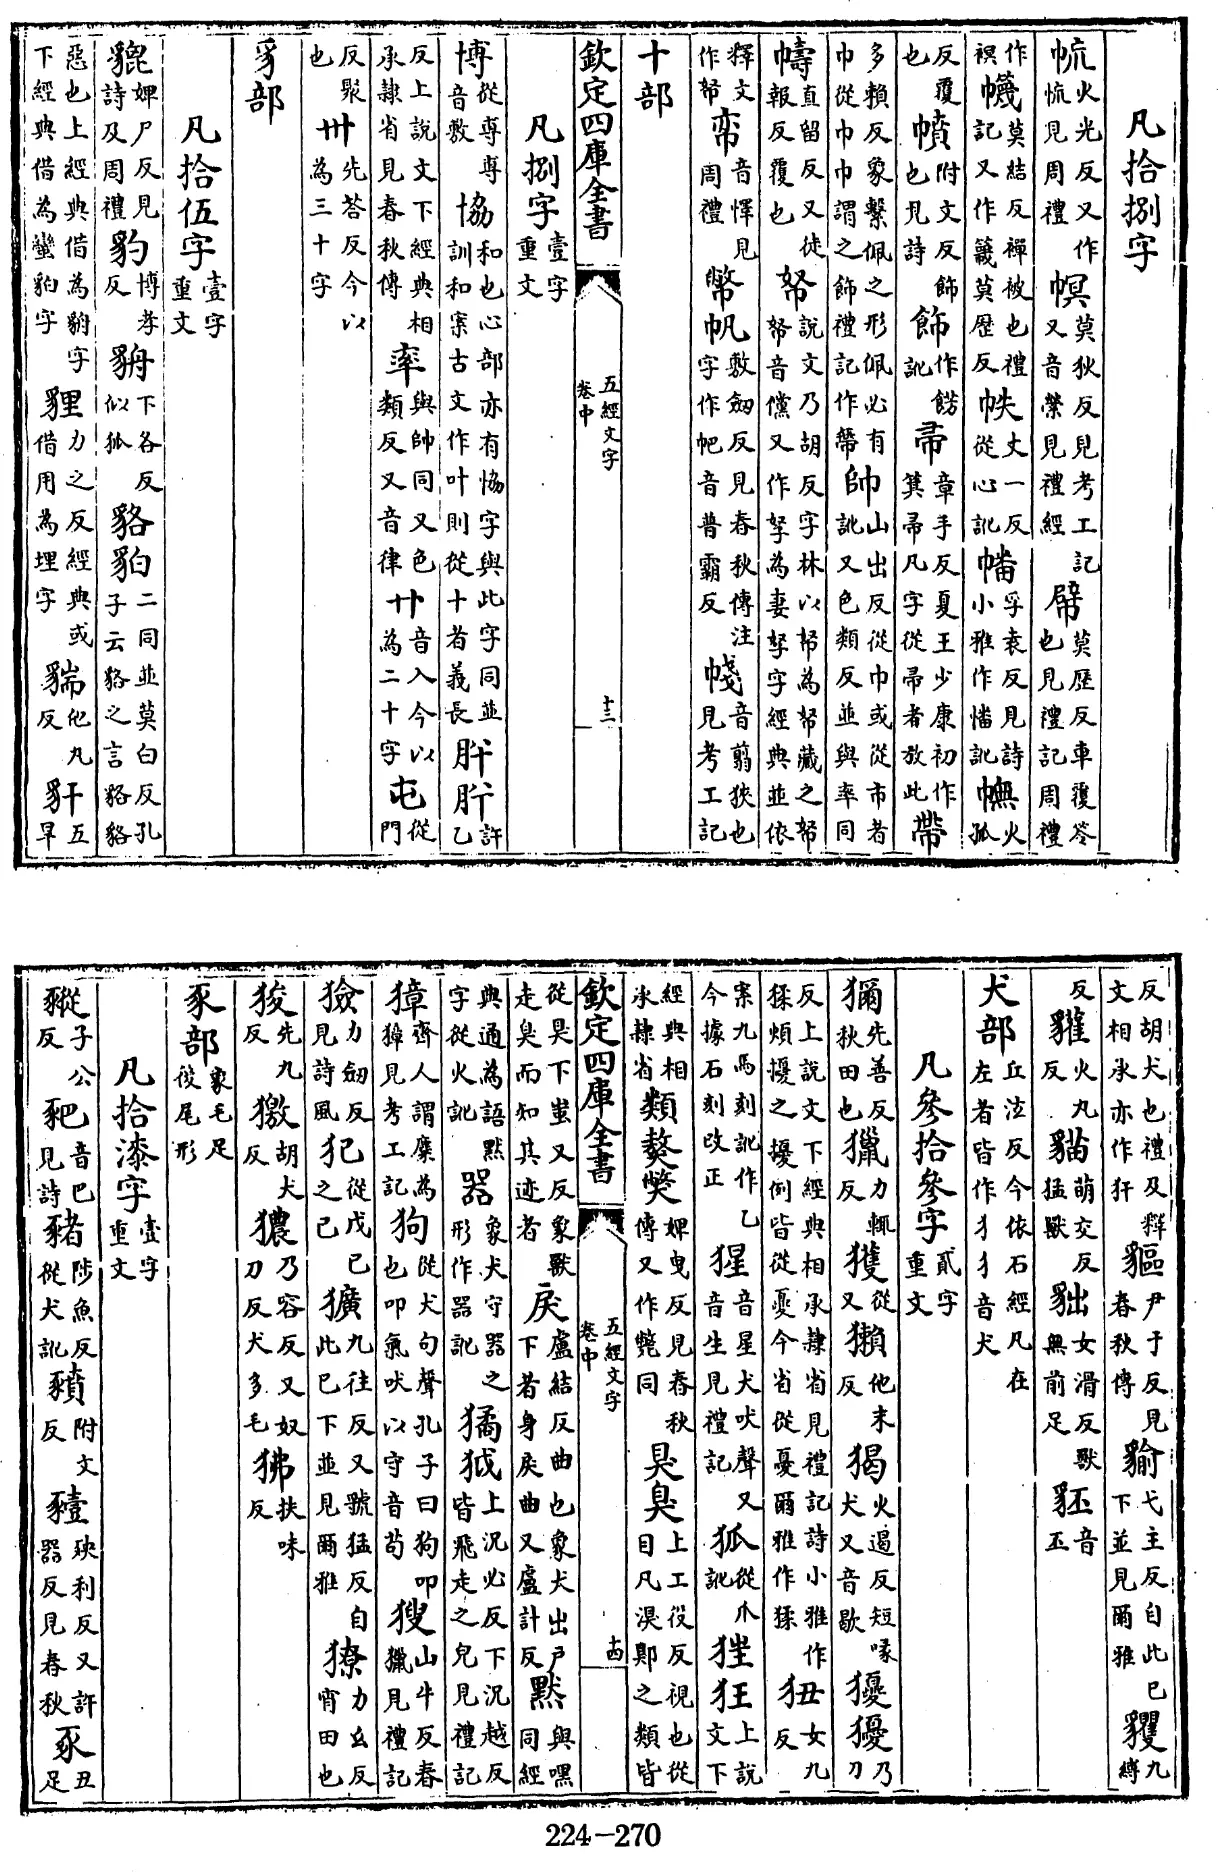 凡拾捌字
㡆火光反又作㡃見周禮幎莫狄反見考工記又音縈見禮經幦莫歷反車覆笭也見禮記周禮
幭莫結反襌被也禮記又作簚莫歷反帙丈一反從心訛幡孚袁反見詩小雅作憣訛幠火孤
反覆也幩附文反飾也見詩飾作餝訛帚章手反夏王少康初作箕帚凡字從帚者放此帶
多賴反象繫佩之形佩必有巾從巾巾謂之飾禮記作鞶帥山出反從巾或從市者訛又色類反並與率同
幬直留反又徒報反覆也帑說文乃胡反字林以帑為帑藏之帑帑音儻又作孥為妻孥字經典並依
釋文作帑帟音怿見周禮幣帆敷劒反見春秋傳注字作帊音普霸反帴音翦狹也見考工記
十部
欽定四庫全書 五經文字 卷中 十三
凡捌字壹字重文
博從尃尃音敷協和也心部亦有恊字與此字同並訓和案古文作叶則從十者義長肸肹許乙
反上說文下經典相承隸省見春秋傳率與帥同又色類反又音律廿音入今以為二十字屯從門
反聚也卅先荅反今以為三十字
豸部
凡拾伍字壹字重文
貔婢尸反見詩及周禮豹博孝反貈下各反似狐貉貊二同並莫白反孔子云貉之言貉貉
惡也上經典借為貈字下經典借為蠻貊字貍力之反經典或借用為埋字貒他丸反豻五旱
反胡犬也禮及釋文相承亦作犴貙尹于反見春秋傳貐弋主反自此已下並見爾雅貜九縛
反貛火丸反貓萌交反猛獸貀女滑反獸無前足豾音丕
犬部丘泫反今依石經凡在左者皆作犭犭音犬
凡參拾參字貳字重文
獮先善反秋田也獵力輒反獲從又獺他末反猲火遏反短喙犬又音歇獶獿乃刀
反上說文下經典相承隸省見禮記詩小雅作猱煩擾之擾例皆從憂今省從憂爾雅作猱狃女九反
案九馬刻訛作乙今據石刻改正猩音星犬吠聲又音生見禮記狐從爪訛狴狂上說文下
經典相承隸省類獘獎婢曳反見春秋傳又作斃同狊臭上工役反視也從目凡湨鄓之類皆
欽定四庫全書 五經文字 卷中 十四
從狊下蚩又反象獸走臭而知其迹者戾盧結反曲也象犬出戶下者身戾曲又盧計反默與嘿同經
典通為語默字從火訛器象犬守器之形作噐訛獝狘上況必反下況越反皆飛走之皃見禮記
獐齊人謂麇為獐見考工記狗從犬句聲孔子曰狗叩也叩氣吠以守音苟獀山牛反春獵見禮記
獫力劒反見詩風犯從戊已之已獷九往反又虢猛反自此已下並見爾雅獠力幺反宵田也
狻先九反獥胡犬反獳乃容反又奴刀反犬多毛狒扶味反
豕部象毛足後尾形
凡拾漆字壹字重文
豵子公反豝音巴見詩豬陟魚反從犬訛豶附文反豷殃利反又許器反見春秋豖丑足